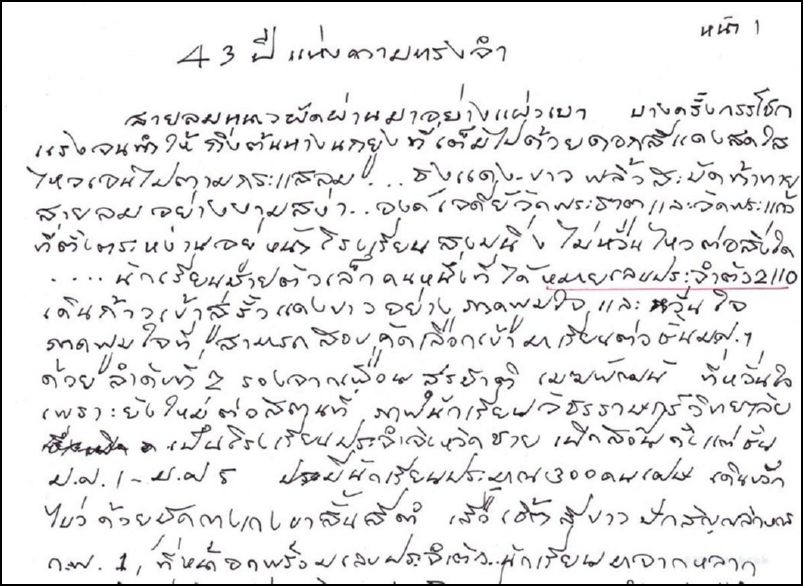 หน้า 1
43 ปี แห่งความทรงจำ
สายลมหนาวพัดผ่านมาอย่างแผ่วเบา บางครั้งกรรโชก
แรงจนทำให้ กิ่งต้นหางนกยูง ที่เต็มไปด้วยดอกสีแดงสดใส
ไหวเอนไปตามกระแสลม... ธงแดง-ขาว พลิ้วสะบัดท้าทาย
สายลม อย่างงามสง่า.. องค์เจดีย์วัดพระธาตุ และวัดพระแก้ว
ที่ตั้งตระหง่านอยู่หน้าโรงเรียน สงบนิ่ง ไม่หวั่นไหวต่อสิ่งใด
.... นักเรียนชายตัวเล็ก คนหนึ่งที่ได้ หมายเลขประจำตัว 2110
เดินก้าวเข้าสู่รั้วแดงขาวอย่าง ภาคภูมิใจ และ หวั่นใจ
ภาคภูมิใจที่ สามารถสอบคัดเลือกเข้ามาเรียนต่อชั้นมศ.1
ด้วยลำดับที่ 2 รองจากเพื่อน สรชาติ เมฆพัฒน์ ที่หวั่นใจ
เพราะยังใหม่ต่อสถานที่ ภาพนักเรียนวัชรราษฎร์วิทยาลัย
เป็นโรงเรียนประจำจังหวัดชาย เปิดสอนตั้งแต่ชั้น
ม.ศ. 1 - ม.ศ 5 มีนักเรียนประมาณ 300 คนเศษ เดินขวัก
ไขว่ ด้วยชุดกางเกงขาสั้นสีดำ เสื้อเชิ้ตสีขาว ปักสัญลักษณ์
ก.พ. 1, ที่หน้าอกพร้อมเลขประจำตัว.. นักเรียนมาจากหลาก